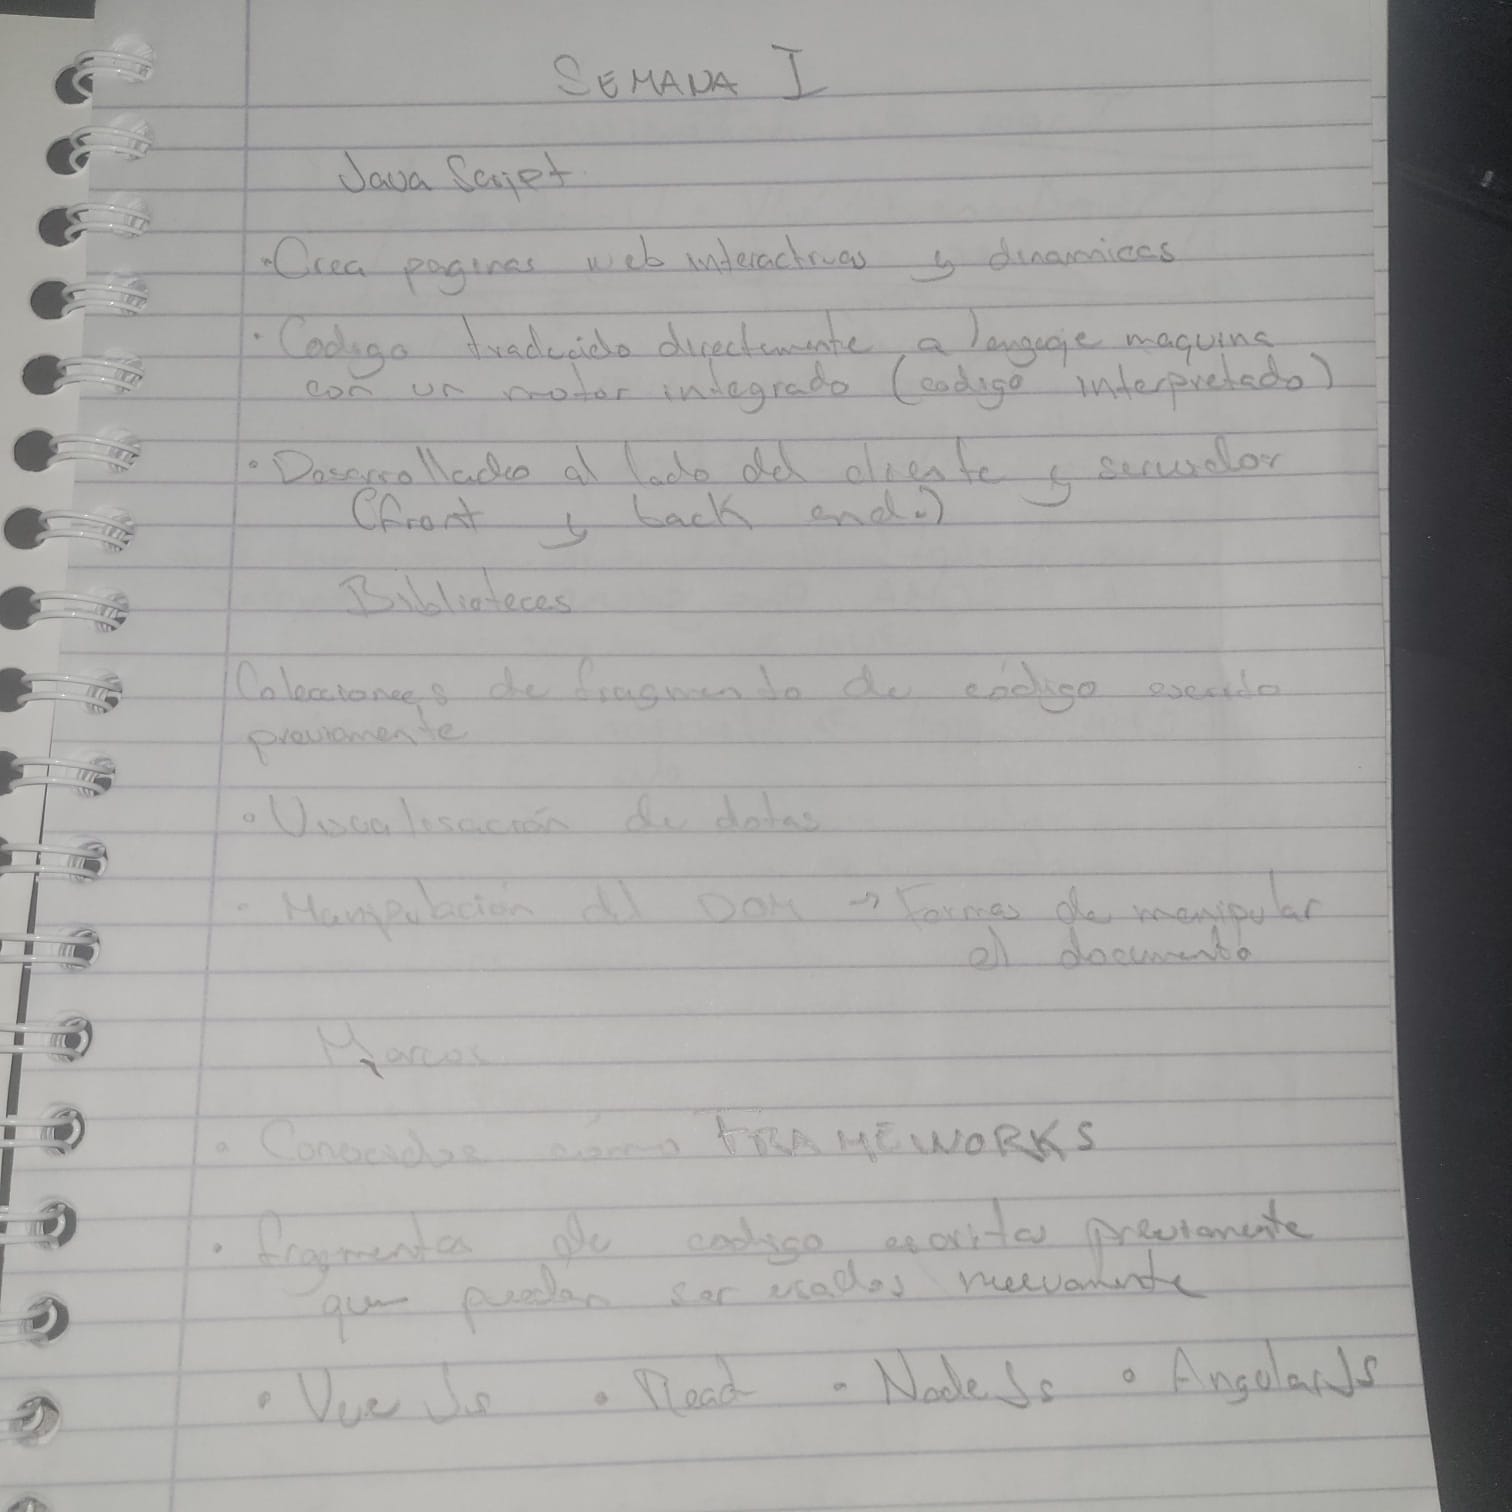 SEMANA I
Java Script
• Crea paginas web interactivas y dinamicas
• Codigo traducido directamente a lenguaje maquina
con un motor integrado (codigo interpretado)
• Desarrollado al lado del cliente y servidor
(front y back end.)
Bibliotecas
Colecciones de fragmento de código escrito
previamente
• Visualisación de datos
• Manipulación del DOM → Formas de manipular
el documento
Marcos
• Conocidos como FRAMEWORKS
• fragmentos de codigo escritos previamente
que pueden ser usados nuevamente
• Vue Js • React • Node Js • AngularJS